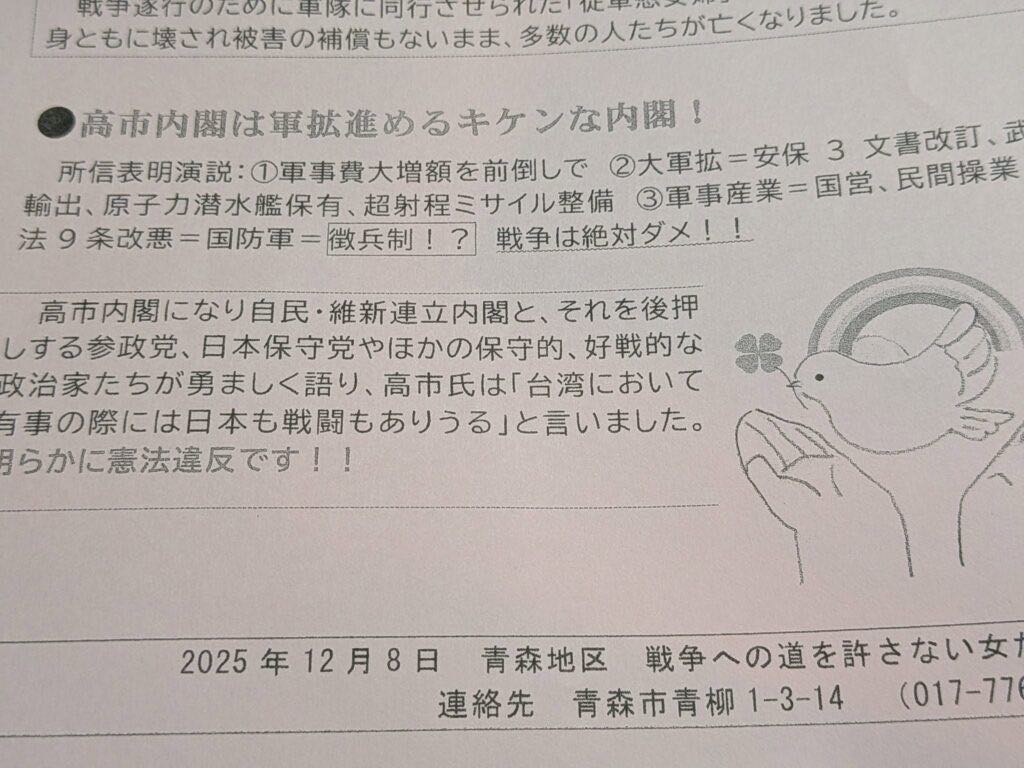 戦争遂行のために軍隊に同行させられた「従軍慰安婦
身ともに壊され被害の補償もないまま、多数の人たちが亡くなりました。
●高市内閣は軍拡進めるキケンな内閣！
所信表明演説：①軍事費大増額を前倒しで ②大軍拡＝安保 3 文書改訂、武
輸出、原子力潜水艦保有、超射程ミサイル整備 ③軍事産業＝国営、民間操業
法 9 条改悪＝国防軍＝徴兵制！？ 戦争は絶対ダメ！！
高市内閣になり自民・維新連立内閣と、それを後押
しする参政党、日本保守党やほかの保守的、好戦的な
政治家たちが勇ましく語り、高市氏は「台湾において
有事の際には日本も戦闘もありうる」と言いました。
明らかに憲法違反です！！
2025 年 12 月 8 日 青森地区 戦争への道を許さない女た
連絡先 青森市青柳 1-3-14 （017-776